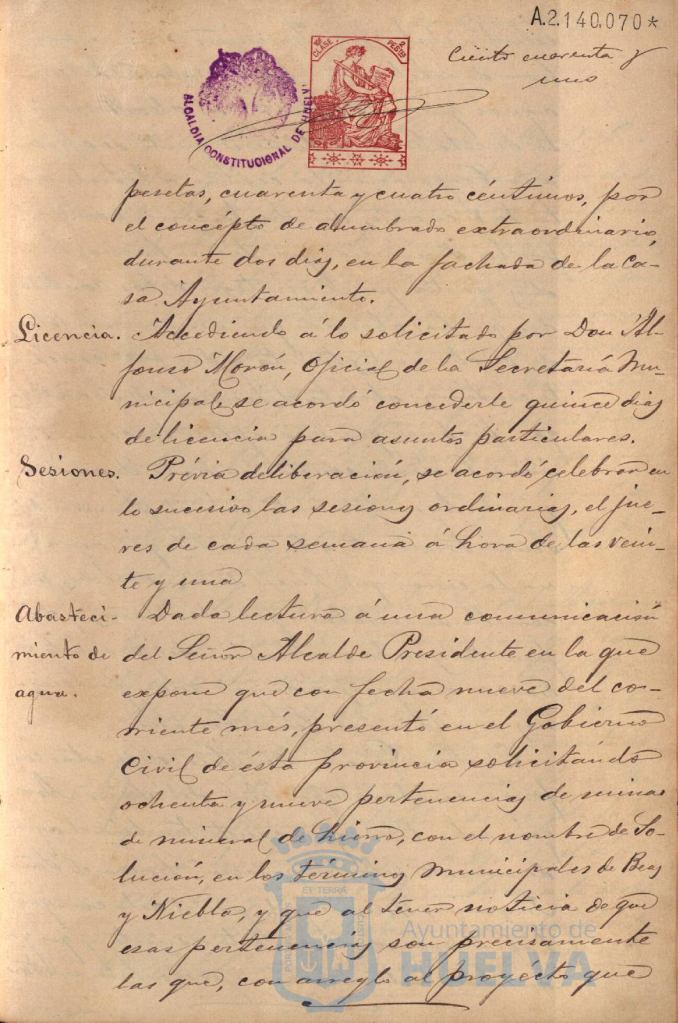 A.2.140,070*
Ciento cuarenta y
uno
10ª CLASE.
2 PESTAS
ALCALDIA CONSTITUCIONAL DE HUELVA.
pesetas, cuarenta y cuatro céntimos, por
el concépto de alumbrado extraordinario,
durante dos dias, en la fachada de la Ca-
sa Ayuntamiento.
Licencia. Accediendo á lo solicitado por Don Al-
fonso Morón, Oficial de la Secretaría Mu-
nicipal, se acordó concederle quince dias
de licencia para asuntos particulares.
Sesiones. Prévia deliberación, se acordó celebrar en
lo sucesivo las sesiones ordinarias, el jue-
ves de cada semana á hora de las vein-
te y una
Abasteci-
miento de
agua.
Dada lectura á una comunicación
del Señor Alcalde Presidente en la que
expone que con fecha nueve del co-
rriente més, presentó en el Gobierno
Civil de ésta provincia solicitando
ochenta y nueve pertenencias de minas
de mineral de hierro, con el nombre de So-
lución, en los términos municipales de Beas
y Niebla, y que al tener noticia de que
esas pertenencias son precisamente
las que, con arreglo al proyécto que
Ayuntamiento de
HUELVA